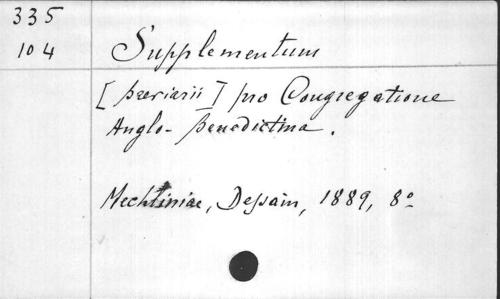 335
104
Supplementum
[Breviarii] pro Congregatione
Anglo-Benedictina.
Mechliniae, Dessain, 1889, 8º